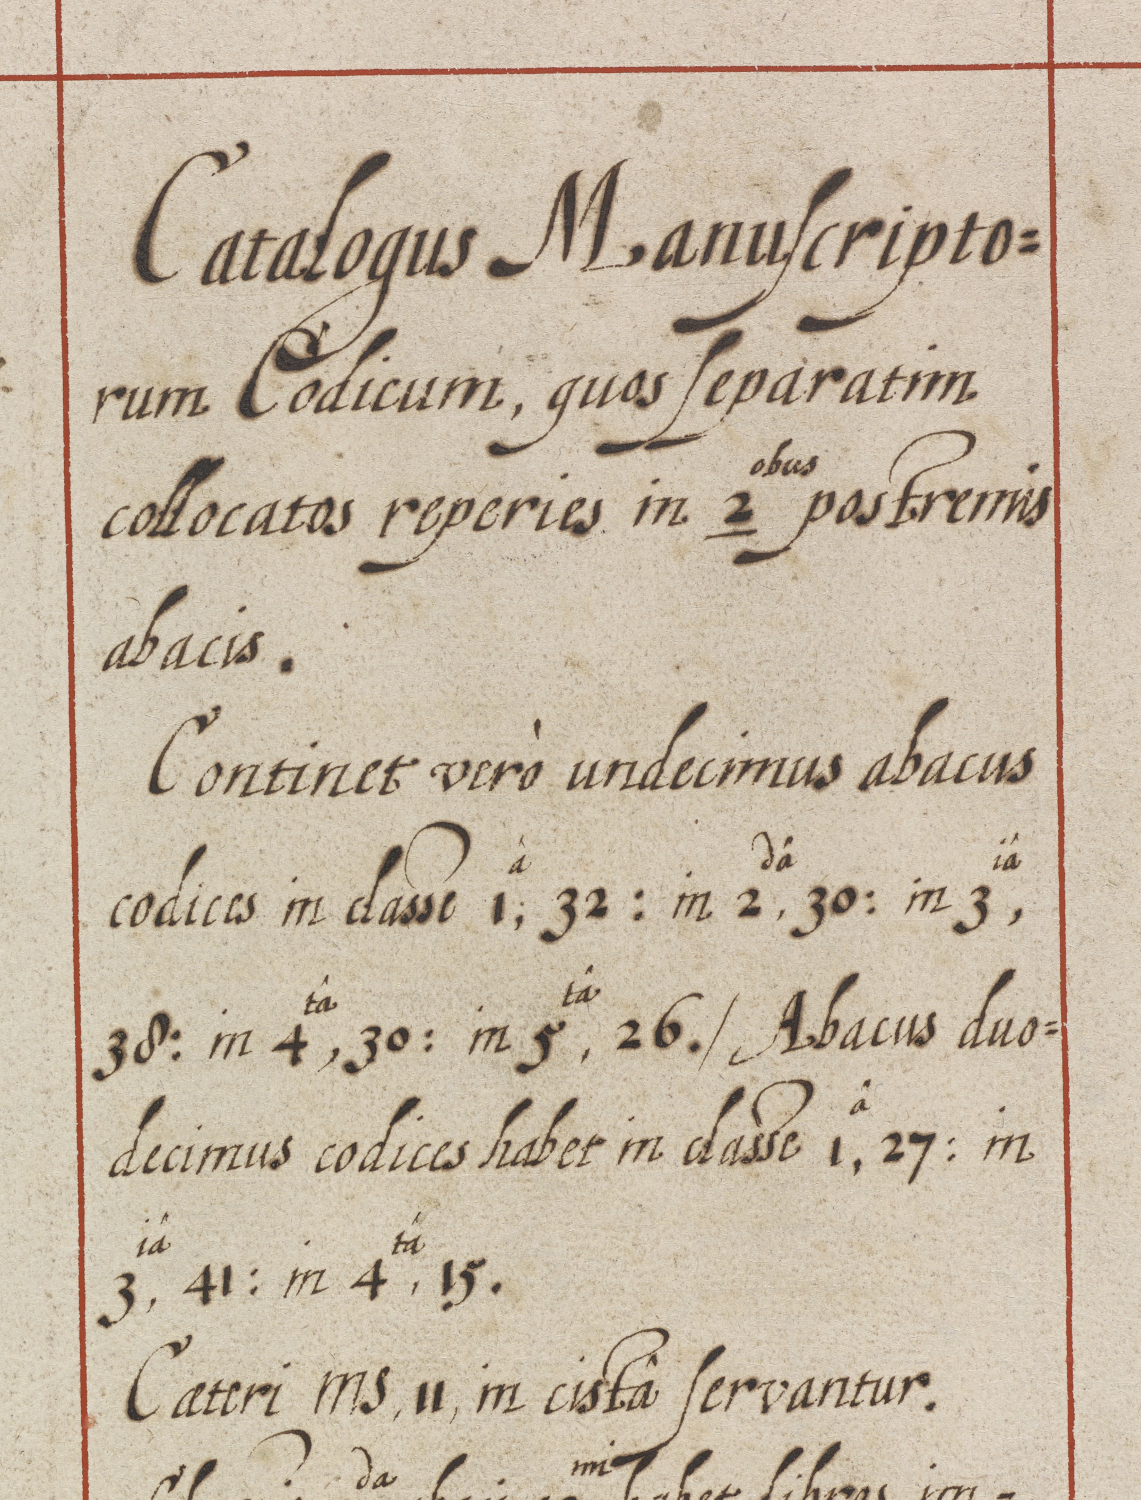 Catalogus Manuſcripto=
rum Codicum, quos ſeparatim
collocatos reperies in 2obus postremis
abacis.
Continet verò undecimus abacus
codices in classe 1â, 32: in 2dâ, 30: in 3iâ,
38: in 4tâ, 30: in 5tâ, 26./ Abacus duo=
decimus codices habet in classe 1â, 27: in
3iâ, 41: in 4tâ, 15.
Cæteri ms, 11, in cistâ ſervantur.
habet libros im-